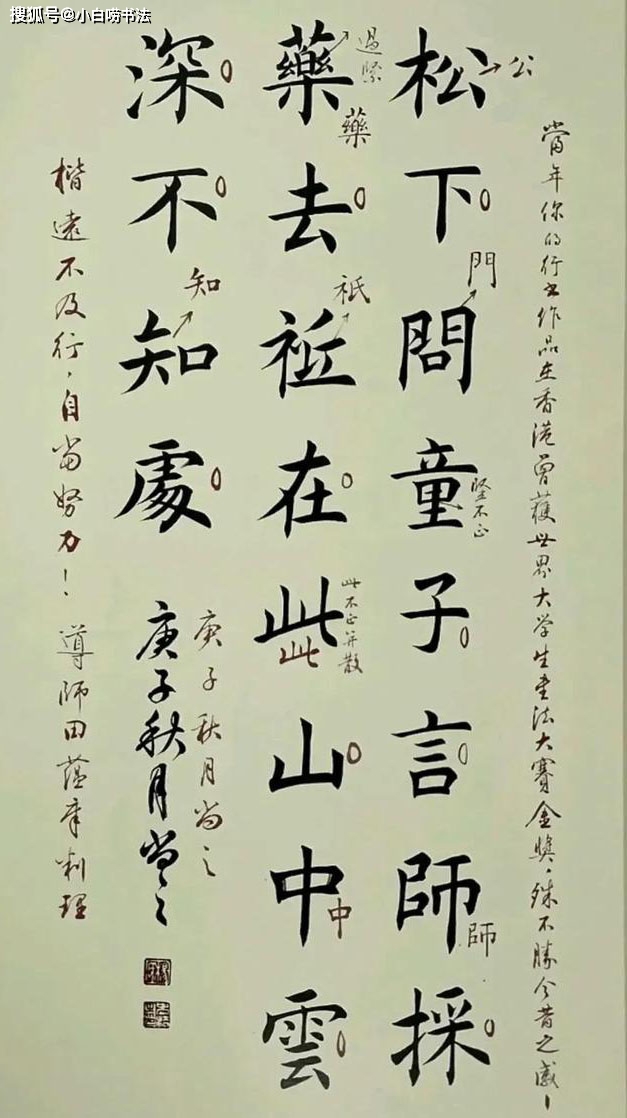 搜狐号@小白唠书法
當年你的行书作品在香港曾獲世界大学生书法大赛金奬，殊不勝今昔之感！
松下問童子言師採
公
門
竖不正
師
藥去祗在此山中雲
過緊
藥
祇
此不正并散
此
中
深不知處
知
庚子秋月尚之
庚子秋月尚之
楷遠不及行，自当努力！導師田蕴章